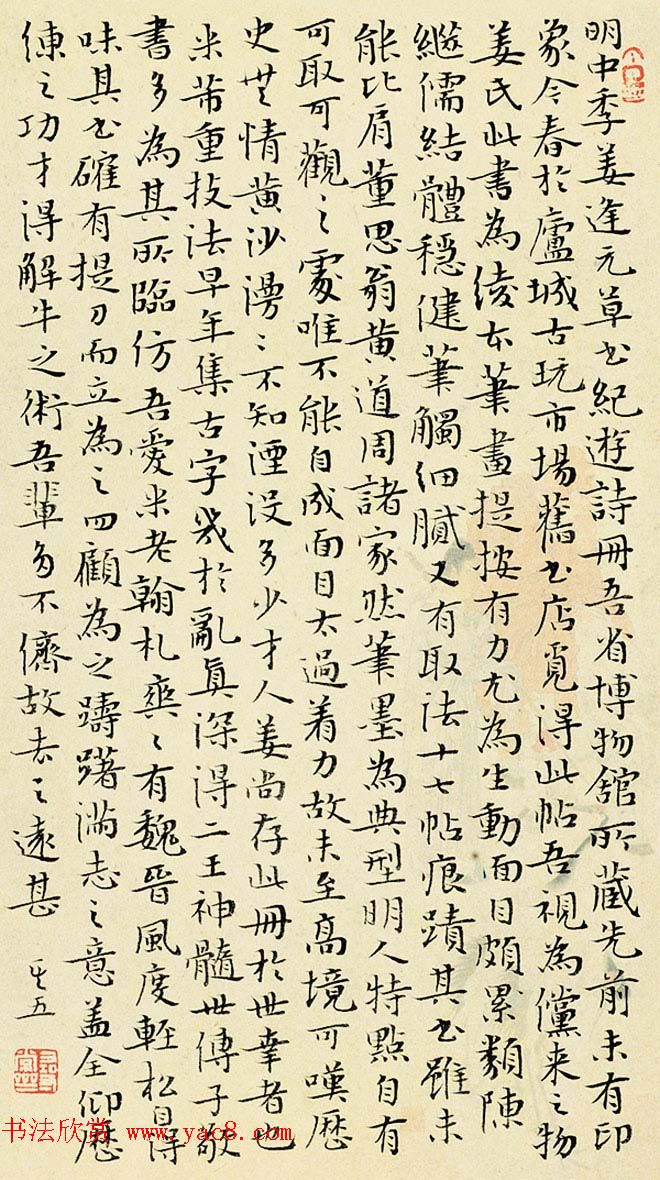 明中季姜逢元草书紀遊詩冊吾省博物舘所藏先前未有印
象今春於廬城古玩市場舊书店覓得此帖吾視為儻来之物
姜氏此書為綾本筆畫提按有力尤為生動面目頗累類陳
繼儒結體穩健筆觸细膩又有取法十七帖痕蹟其书雖未
能比肩董思翁黄道周諸家然筆墨為典型明人特點自有
可取可觀之處唯不能自成面目太過着力故未至高境可嘆歷
史無情黄沙漫漫不知湮没多少才人姜尚存此冊於世幸者也
米芾重技法早年集古字幾於亂真深得二王神髓世傳子敬
書多為其所臨仿吾愛米老翰札奕奕有魏晋風度輕松自得
味其书確有提刀而立為之四顧為之躊躇滿志之意盖全仰歷
練之功才得解牛之術吾輩多不儕故去之遠甚
书法欣赏 www.yac8.com